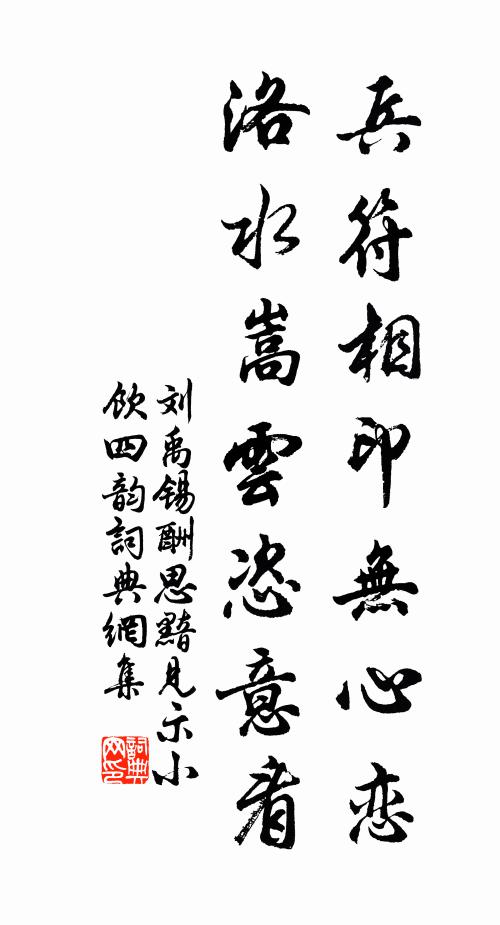 兵符相印無心恋
洛水嵩雲恣意看
刘禹锡酬思黯見示小
飲四韵詞典網集
詞典
网印